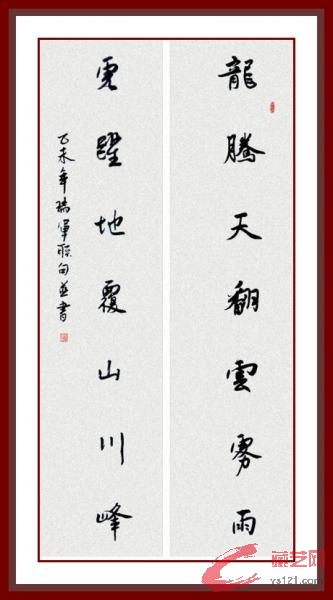 龍騰天翻雲雾雨
虎躍地覆山川峰
乙未年瑞軍联句並書
藏艺网
ys121.com